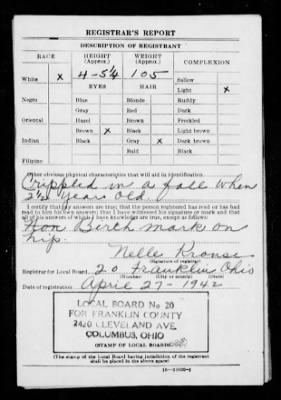 REGISTRAR'S REPORT
DESCRIPTION OF REGISTRANT
RACE
HEIGHT (Approx.)
WEIGHT (Approx.)
COMPLEXION
White X
4-5¼
105
Sallow
EYES
HAIR
Light X
Negro
Blue
Blonde
Ruddy
Gray
Red
Dark
Oriental
Hazel
Brown
Freckled
Brown X
Black
Light brown
Indian
Black
Gray X
Dark brown
Bald
Black
Filipino
Other obvious physical characteristics that will aid in identification
Crippled in a fall when
2½ years old.
I certify that my answers are true; that the person registered has read or has had
read to him his own answers; that I have witnessed his signature or mark and that
all of his answers of which I have knowledge are true, except as follows:
Birth mark on
hip.
Nelle
(Signature of registrar)
Registrar for Local Board 20 Franklin Ohio
(Number) (City or county) (State)
Date of registration April 27-1942
LOCAL BOARD No 20
FOR FRANKLIN COUNTY
2420 CLEVELAND AVE.
COLUMBUS, OHIO
(STAMP OF LOCAL BOARD)
(The stamp of the Local Board having jurisdiction of the registrant
shall be placed in the above space)